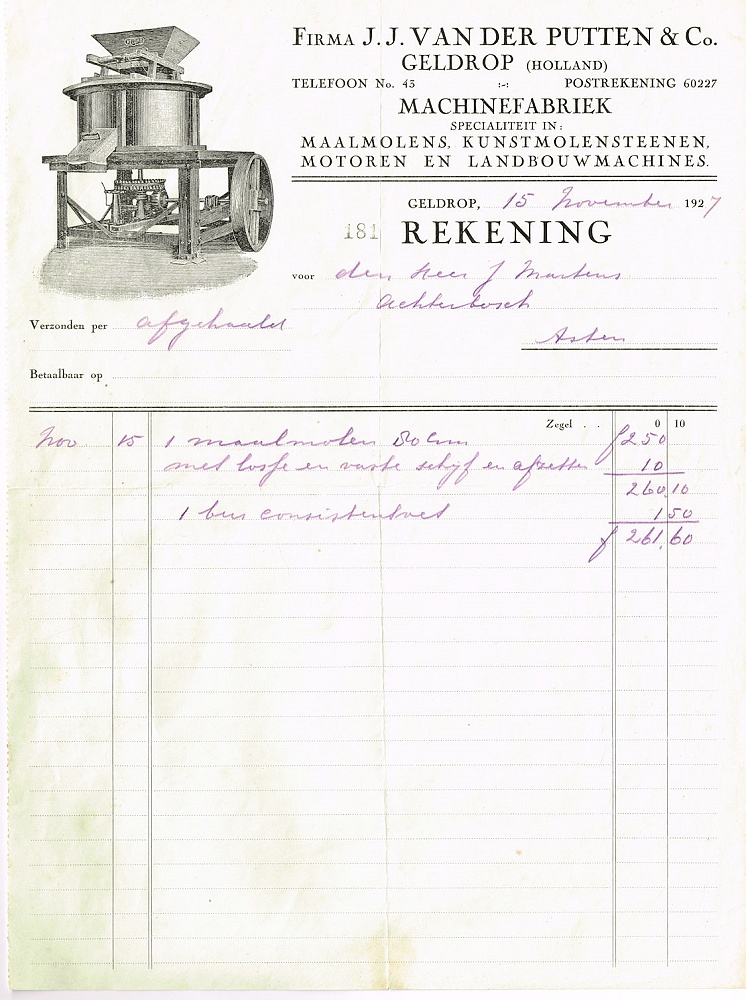 FIRMA J. J. VAN DER PUTTEN & Co.
GELDROP (HOLLAND)
TELEFOON No. 43 :-: POSTREKENING 60227
MACHINEFABRIEK
SPECIALITEIT IN:
MAALMOLENS, KUNSTMOLENSTEENEN,
MOTOREN EN LANDBOUWMACHINES.
GELDROP, 15 November 1927
181 REKENING
voor den Heer J Martens
Achterbosch
Verzonden per afgehaald
Asten
Betaalbaar op
Zegel . . 0 10
Nov 15 1 maalmolen 80 cm f 250
met losse en vaste schijf en afzetter 10
260,10
1 bus consistentvet 1 50
f 261,60